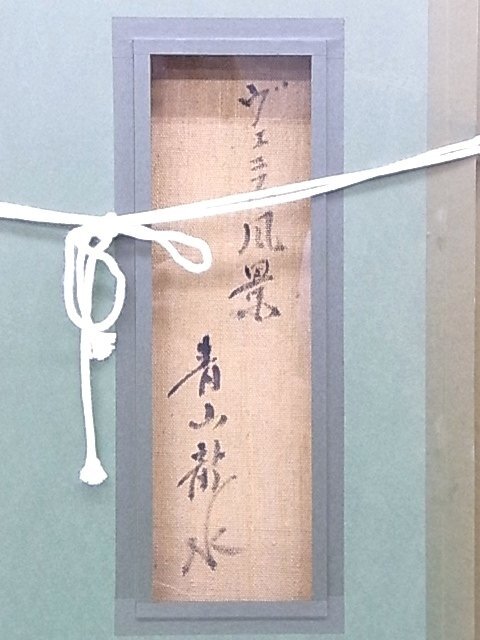 ヴェニス風景
青山龍水